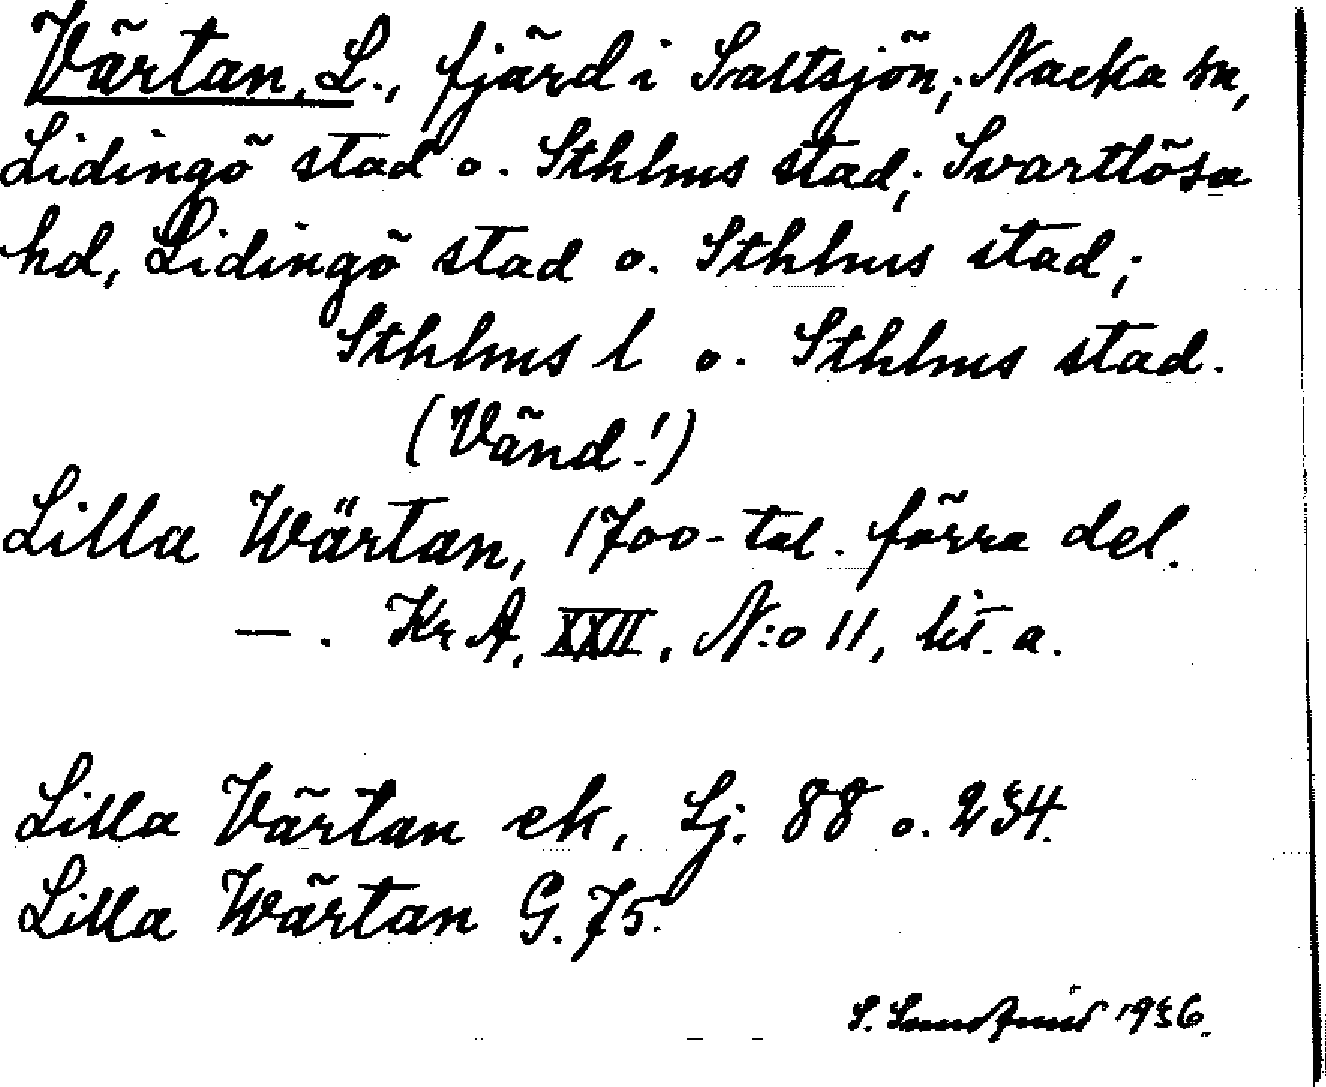 Värtan, L., fjärd i Saltsjön; Nacka sn,
Lidingö stad o. Sthlms stad; Svartlösa
hd, Lidingö stad o. Sthlms stad;
Sthlms l o. Sthlms stad.
(Vänd!)
Lilla Wärtan, 1700-tal. förra del.
— . Kr A, XXII, N:o 11, lit. a.
Lilla Värtan ek, Lj. 88 o. 234.
Lilla Wärtan G. 75.
S. 1936.